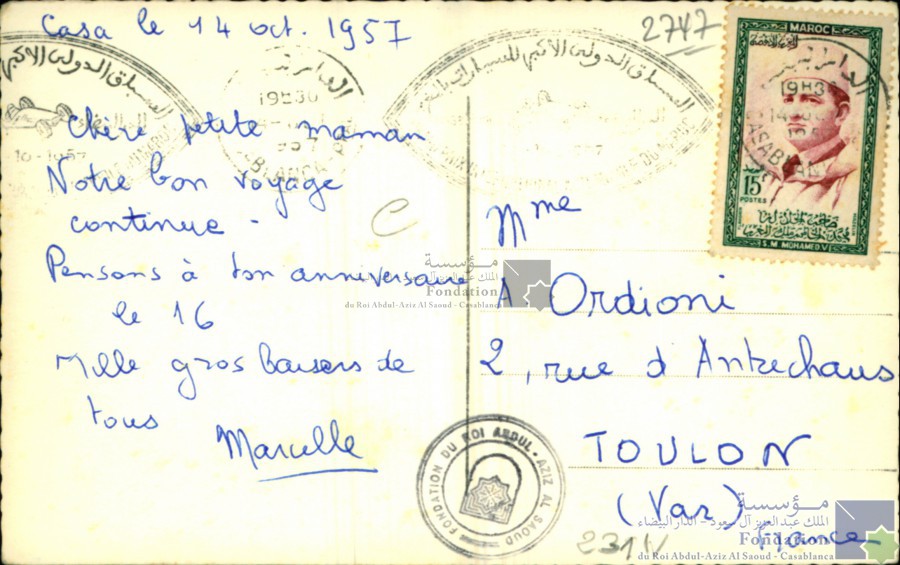 Casa le 14 oct. 1957
Chère petite maman
Notre bon voyage
continue -
Pensons à ton anniversaire
le 16
Mille gros baisers de
tous
Marcelle
2747
C
Mme
A Ordioni
2, rue d'Antrechaus
TOULON
(Var)
France
231V
MAROC
15
POSTES
S.M. MOHAMED V
19H30
10-1957
الدار البيضاء
19H30
CASABLANCA
FONDATION DU ROI ABDUL-AZIZ AL SAOUD
مؤسسة
الملك عبد العزيز آل سعود - الدار البيضاء
Fondation
du Roi Abdul-Aziz Al Saoud - Casablanca
مؤسسة
الملك عبد العزيز آل سعود - الدار البيضاء
Fondation
du Roi Abdul-Aziz Al Saoud - Casablanca